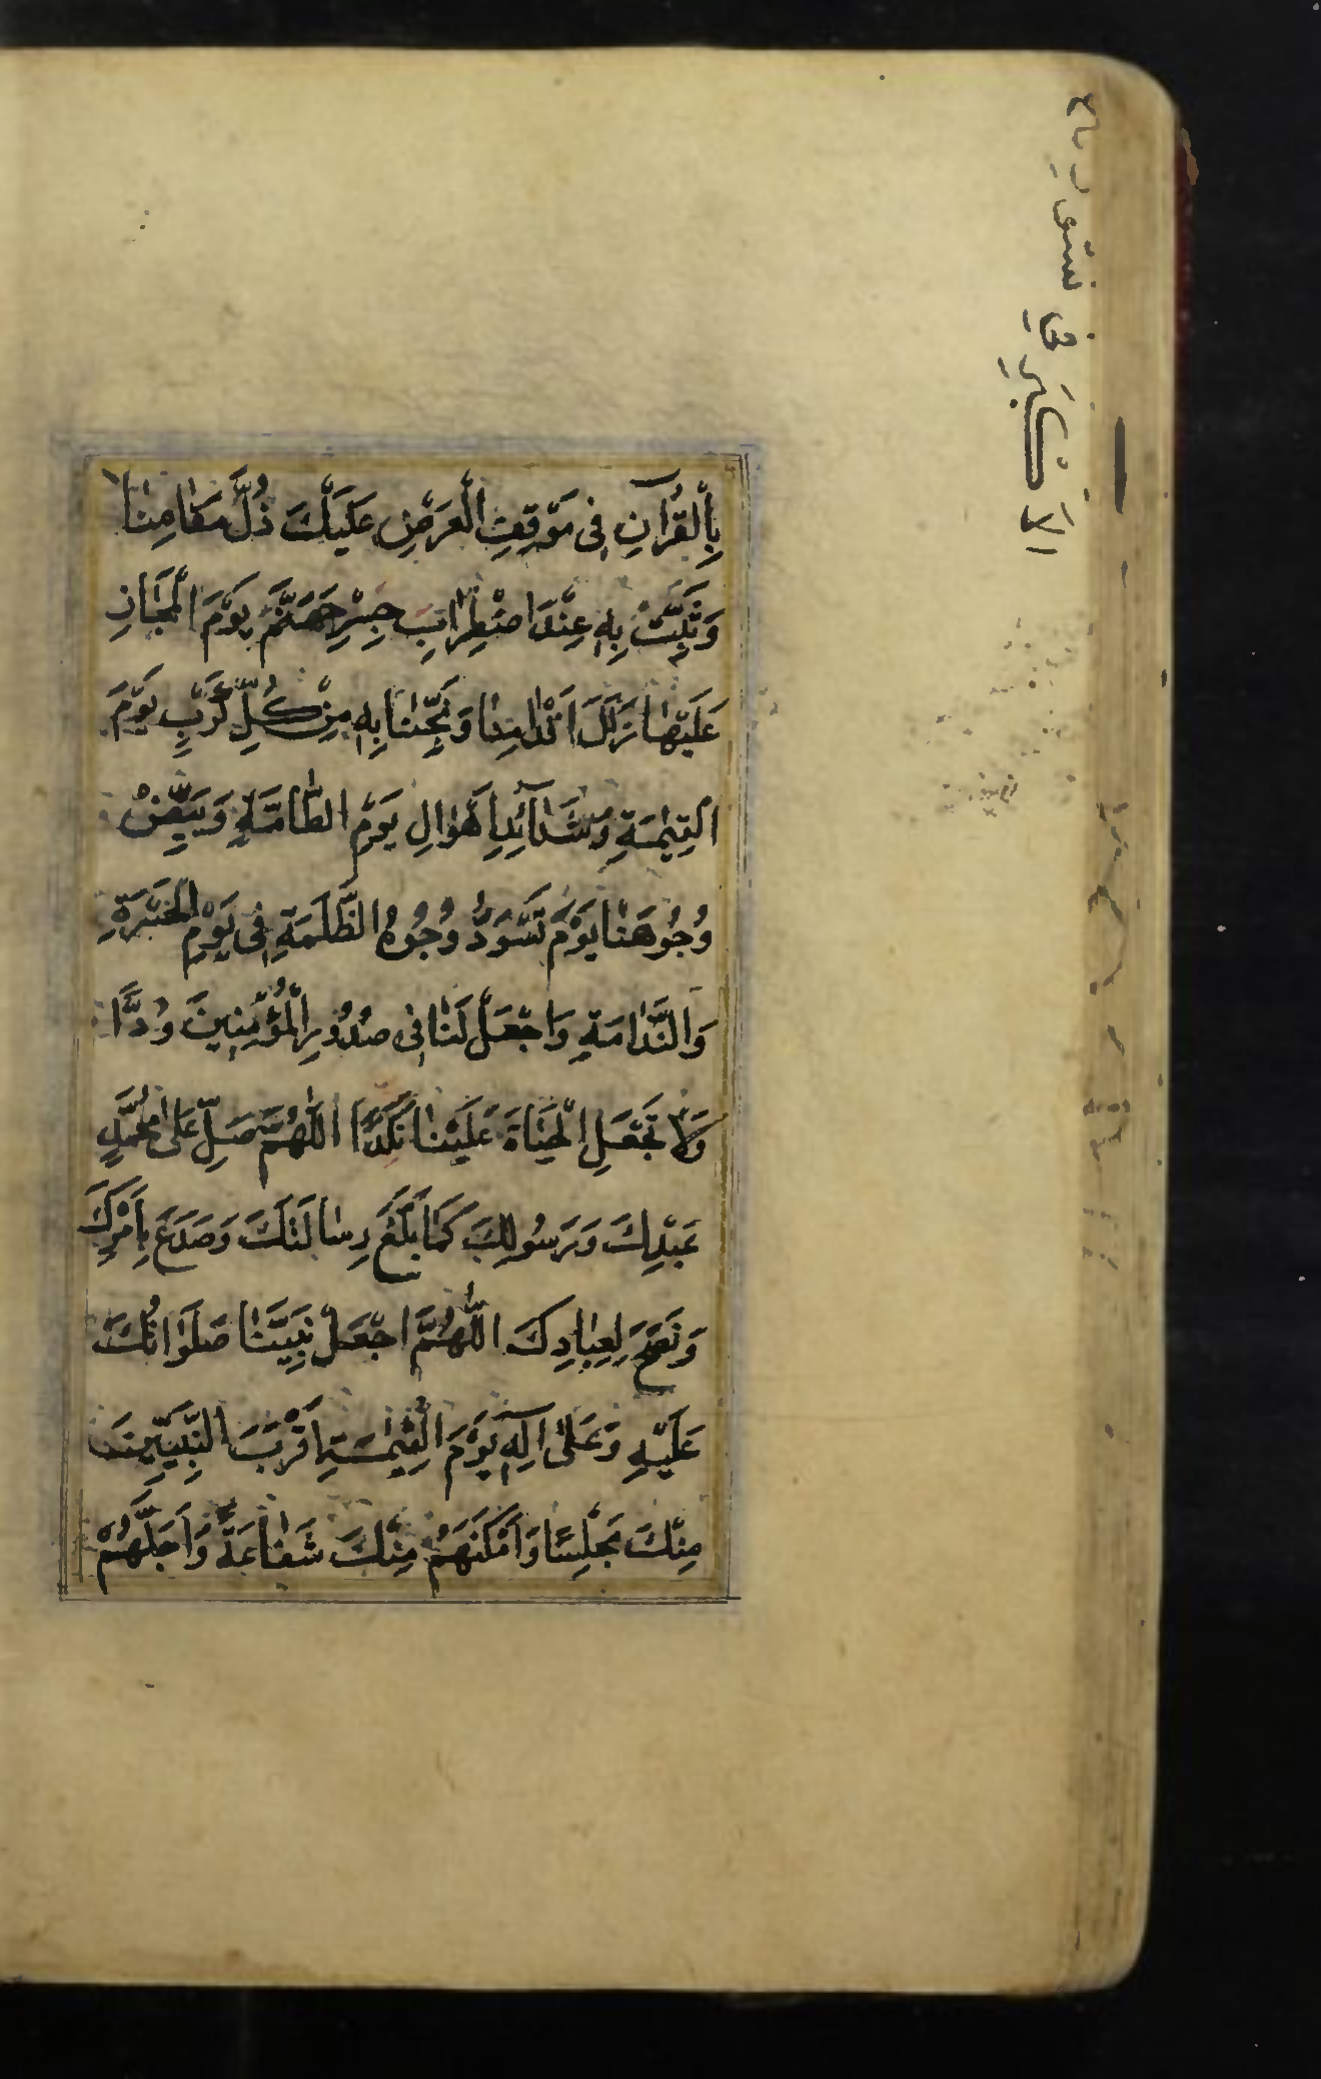 بِالْقُرْآنِ فِى مَوْقِفِ الْعَرْضِ عَلَيْكَ ذُلَّ مَقَامِنَا
وَثَبِّتْ بِهِ عِنْدَ اضْطِرَابِ جِسْرِ جَهَنَّمَ يَوْمَ الْمَجَازِ
عَلَيْهَا زَلَلَ اَقْدَامِنَا وَنَجِّنَا بِهِ مِنْ كُلِّ كَرْبٍ يَوْمَ
الْقِيٰمَةِ وَشَدَآئِدِ اَهْوَالِ يَوْمِ الطَّامَّةِ وَبَيِّضْ
وُجُوهَنَا يَوْمَ تَسْوَدُّ وُجُوهُ الظَّلَمَةِ فِى يَوْمِ الْحَسْرَةِ
وَالنَّدَامَةِ وَاجْعَلْ لَنَا فِى صُدُورِ الْمُؤْمِنِينَ وُدًّا
وَلَا تَجْعَلِ الْحَيَاةَ عَلَيْنَا نَكَدًا اَللّٰهُمَّ صَلِّ عَلٰى مُحَمَّدٍ
عَبْدِكَ وَرَسُولِكَ كَمَا بَلَّغَ رِسَالَتَكَ وَصَدَعَ بِاَمْرِكَ
وَنَصَحَ لِعِبَادِكَ اَللّٰهُمَّ اجْعَلْ نَبِيَّنَا صَلَوَاتُكَ
عَلَيْهِ وَعَلٰى آلِهِ يَوْمَ الْقِيٰمَةِ اَقْرَبَ النَّبِيِّينَ
مِنْكَ مَجْلِسًا وَاَمْكَنَهُمْ مِنْكَ شَفَاعَةً وَاَجَلَّهُمْ